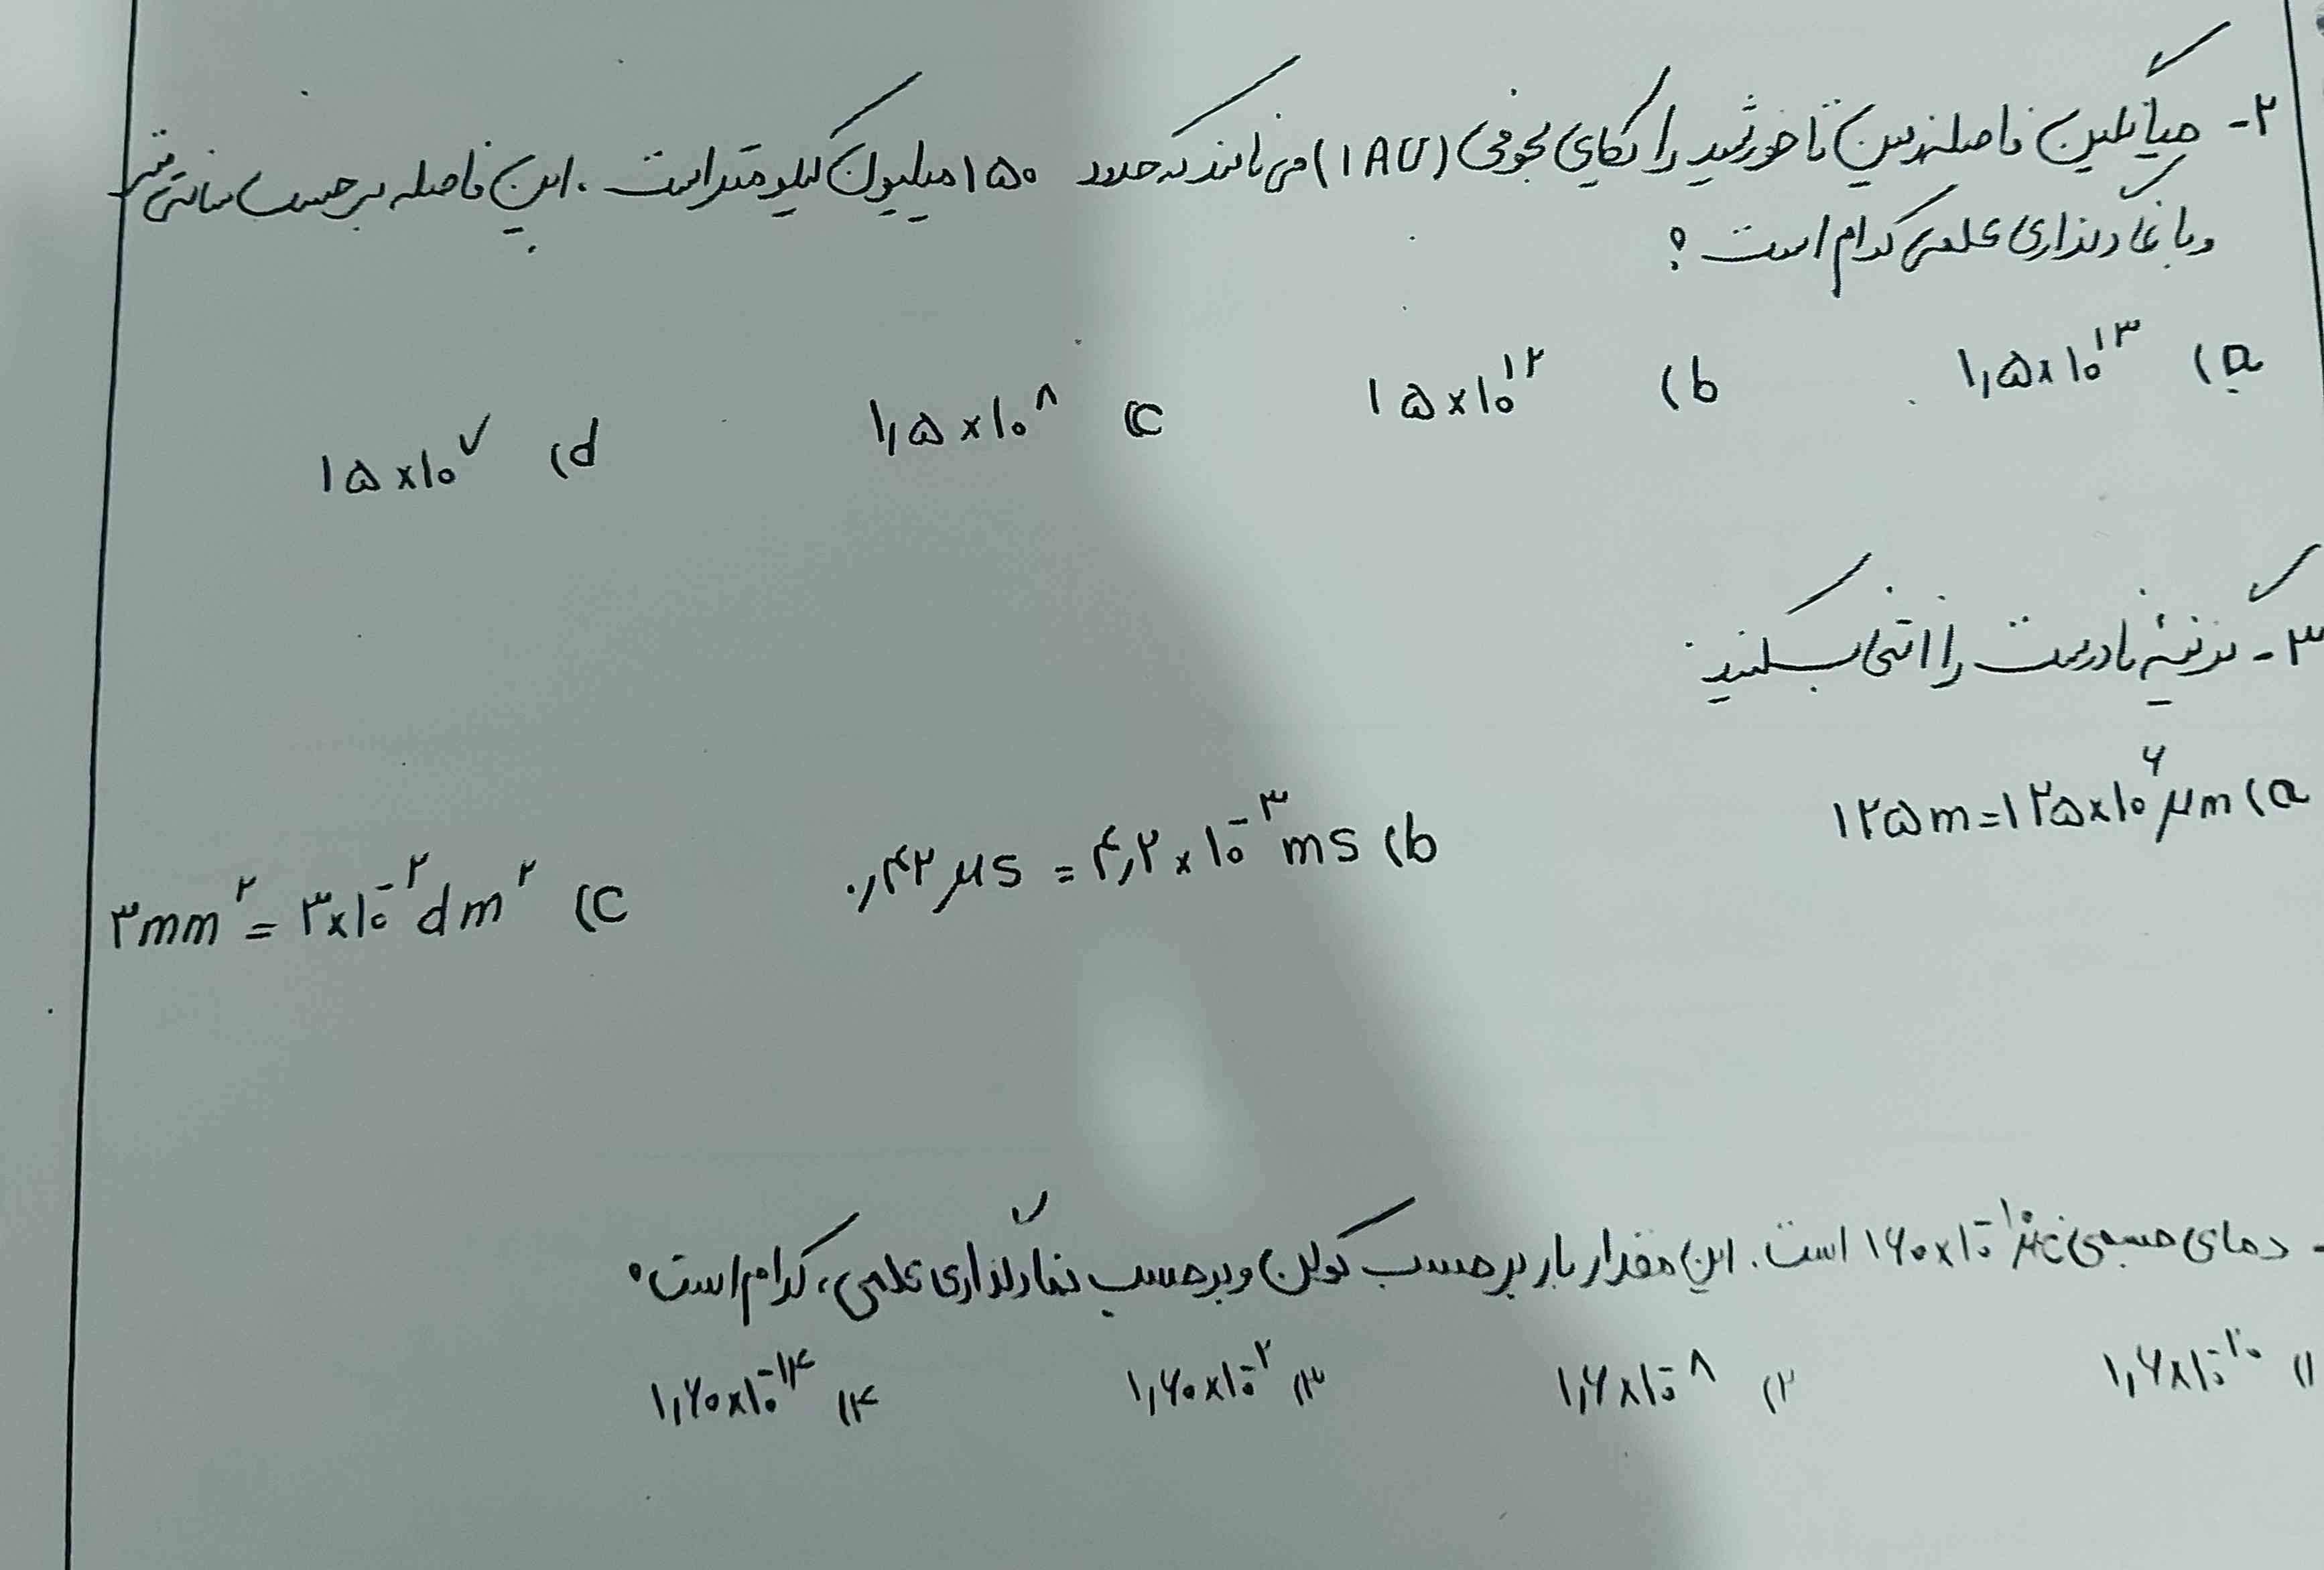 ۲- میانگین فاصله زمین تا خورشید را یکای نجومی (۱AU) می نامند که حدود ۱۵۰ میلیون کیلومتر است . این فاصله بر حسب سانتی متر
و با نمادگذاری علمی کدام است ؟
a) ۱,۵×۱۰^۱۳ b) ۱۵×۱۰^۱۲ c) ۱,۵×۱۰^۸ d) ۱۵×۱۰^۷
۳- گزینهٔ نادرست را انتخاب کنید.
a) ۱۲۵m=۱۲۵×۱۰^۶ μm b) ۰,۴۲ μs = ۴,۲×۱۰^-۳ ms c) ۳mm^۲ = ۳×۱۰^-۲ dm^۲
- دمای جسمی ۱۶۰×۱۰^-۱ است. این مقدار بار برحسب کولن و برحسب نمادگذاری علمی، کدام است؟
۱) ۱,۶×۱۰^-۲۰ ۲) ۱,۶×۱۰^-۸ ۳) ۱,۶۰×۱۰^-۲ ۴) ۱,۶۰×۱۰^-۱۴